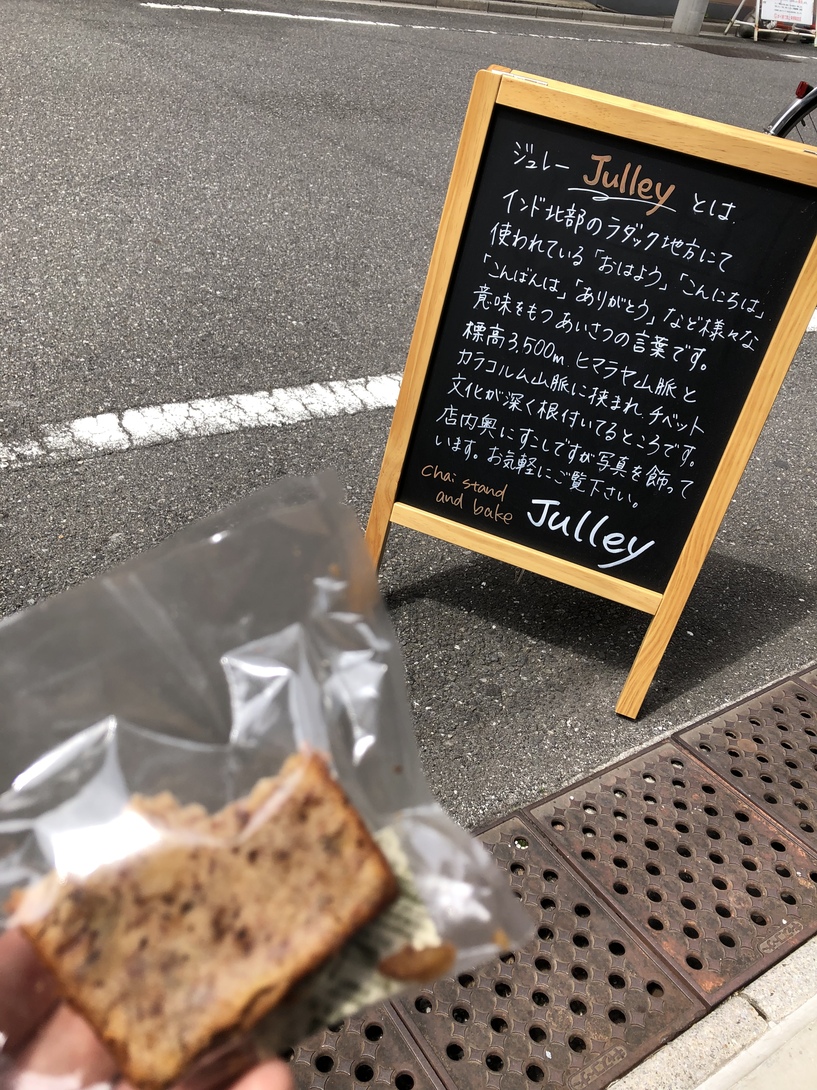 ジュレー Julley とは
インド北部のラダック地方にて
使われている「おはよう」「こんにちは」
「こんばんは」「ありがとう」など様々な
意味をもつあいさつの言葉です。
標高3,500m ヒマラヤ山脈と
カラコルム山脈に挟まれ チベット
文化が深く根付いてるところです。
店内奥にすこしですが写真を飾って
います。お気軽にご覧下さい。
Chai stand
and bake Julley